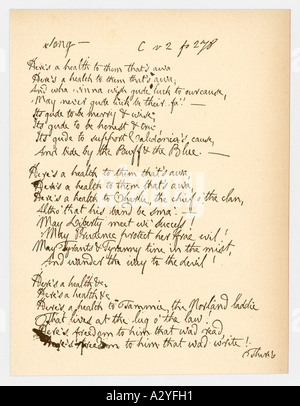 Song —
C v 2 fo 278
Here's a health to them that's awa
Here's a health to them that's awa,
And wha winna wish gude luck to our cause,
May never gude luck be their fa'! —
Its gude to be merry & wise,
Its gude to be honest & true
Its gude to support Caledonia's cause,
And bide by the Buff & the Blue. —
Here's a health to them that's awa,
Here's a health to them that's awa,
Here's a health to Charlie, the chief o' the clan,
Altho' that his band be sma'.
May Liberty meet wi' success!
May Prudence protect her frae evil!
May Tyrants & Tyranny tine in the mist,
And wander the way to the devil!
Here's a health &c.
Here's a health &c
Here's a health to Tammie, the Norland laddie
That lives at the lug o' the law!
Here's freedom to him that wad read,
Here's freedom to him that wad write!
alamy
Image ID: A2YFH1
www.alamy.com